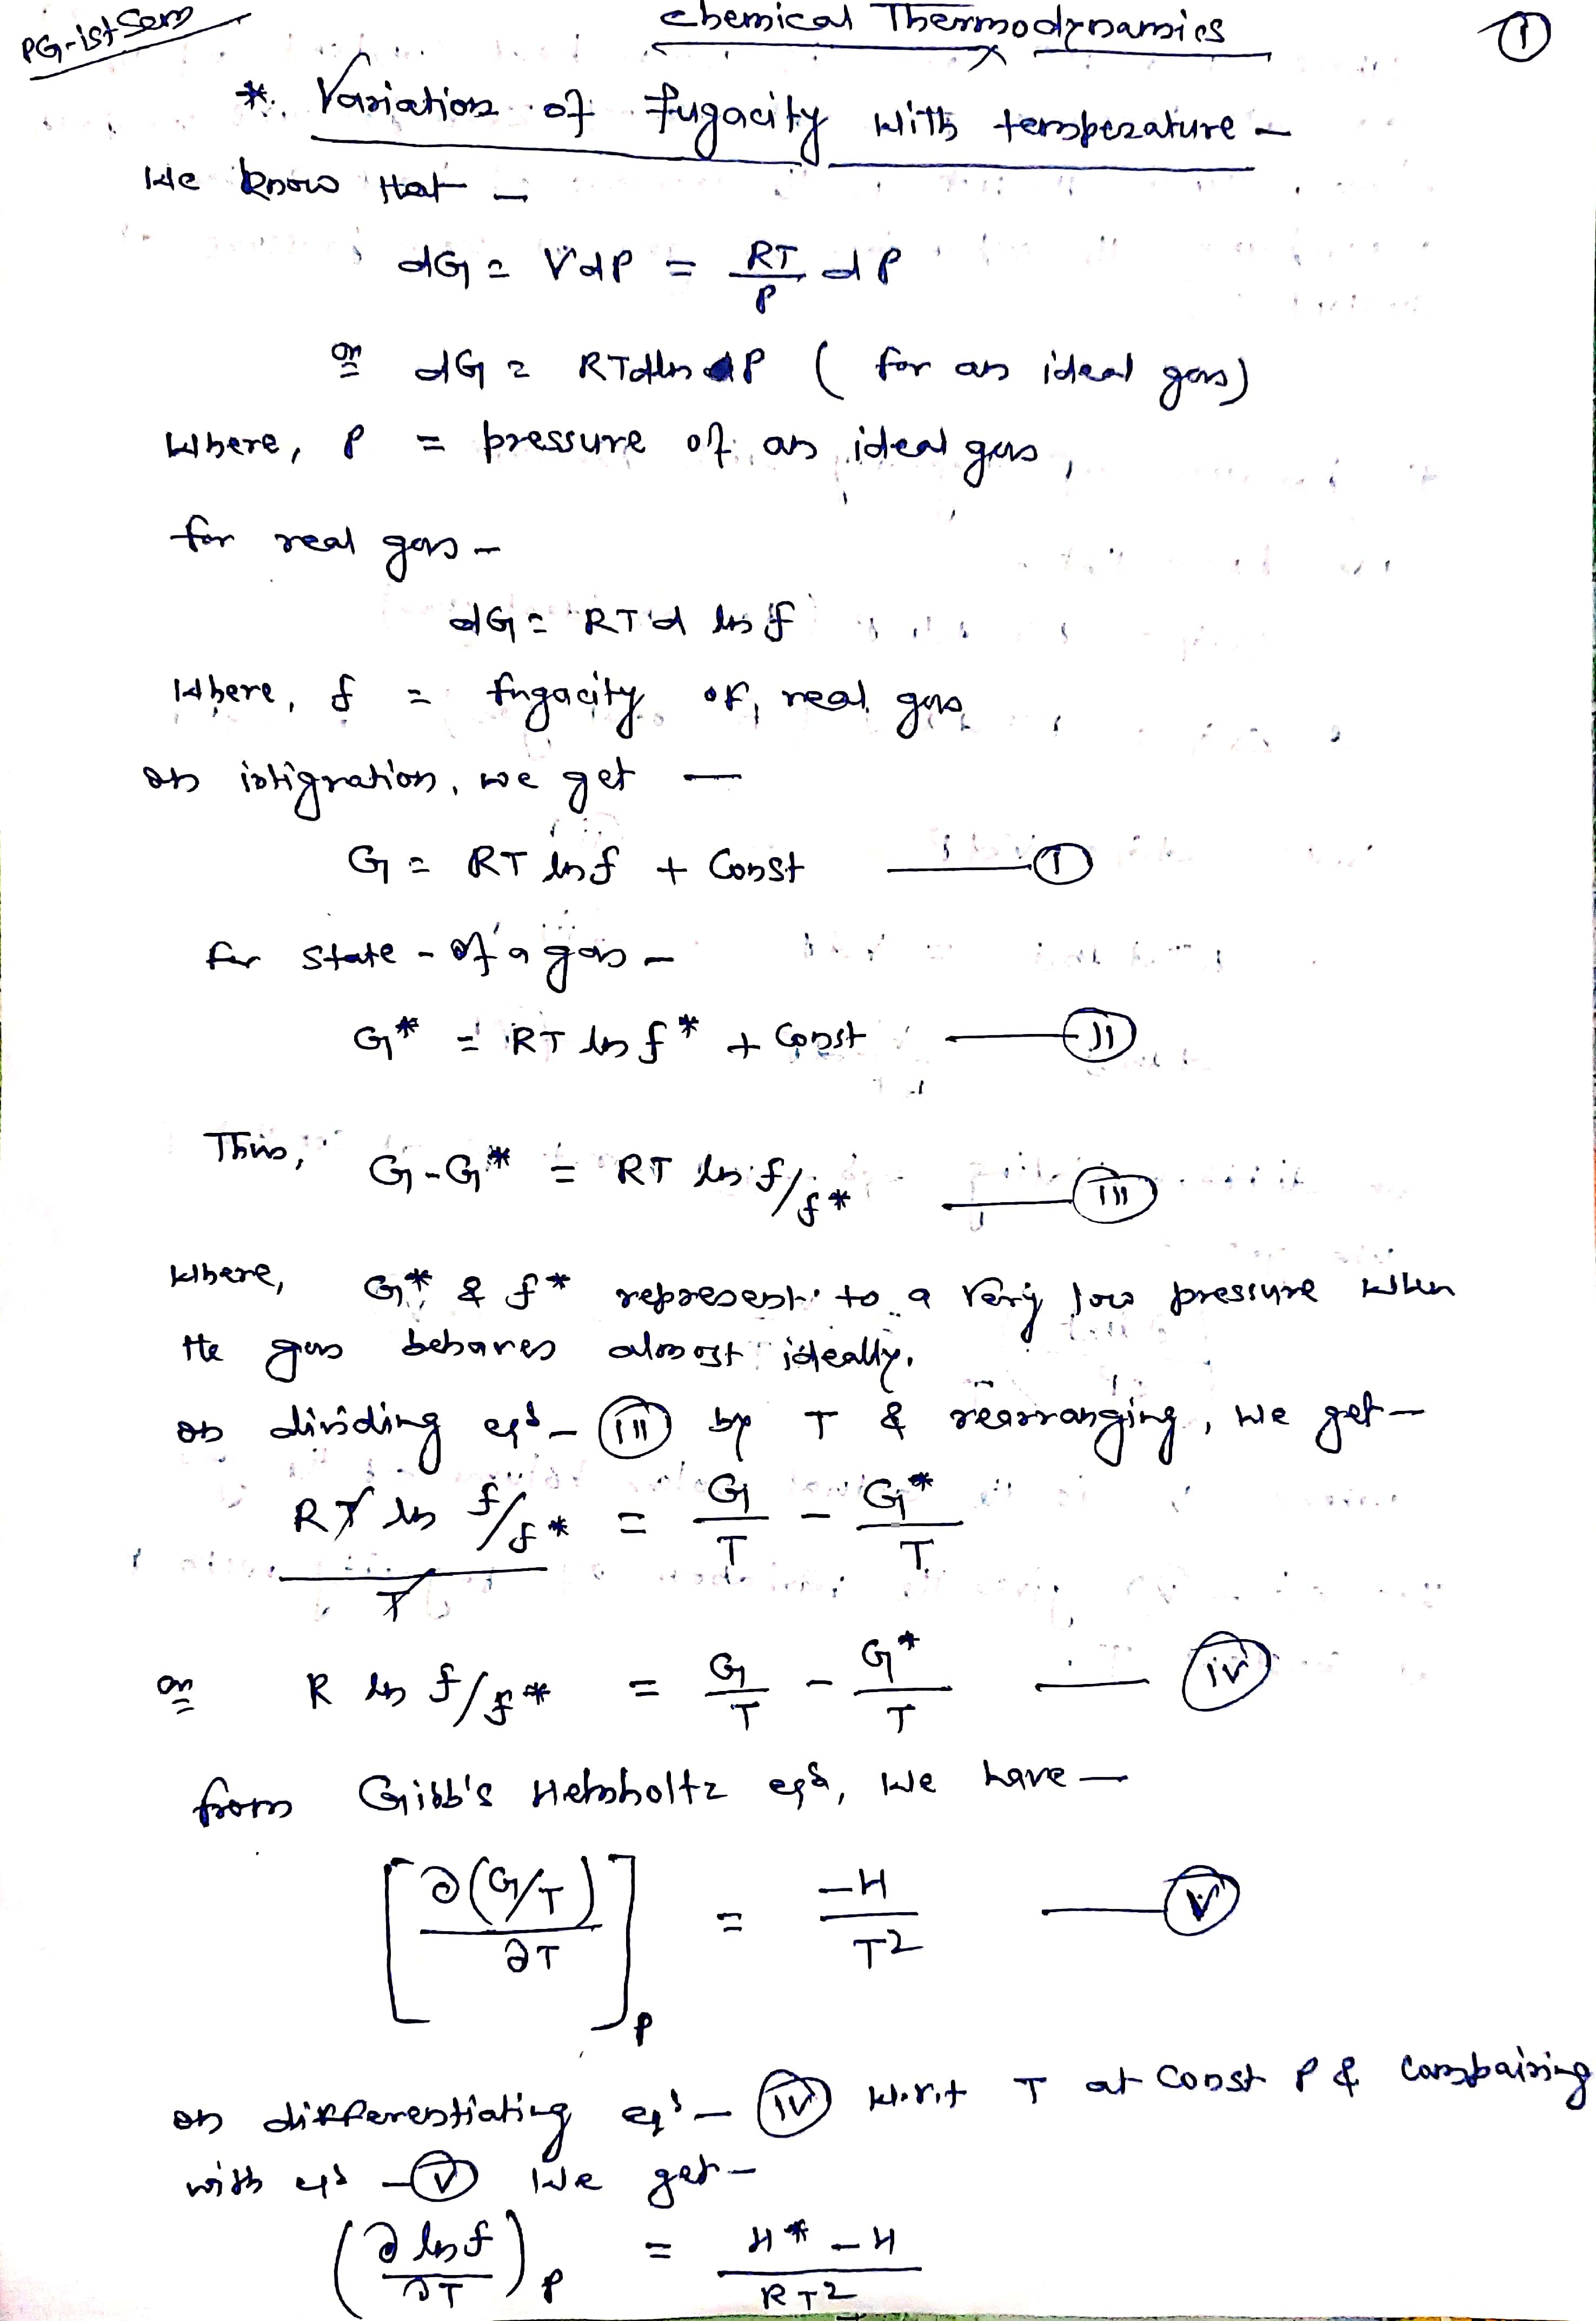 PG-ist Sem
Chemical Thermodynamics
①
*. Variation of fugacity with temperature -
We know that -
dG = VdP = RT/P dP
or dG = RTdln P (for an ideal gas)
Where, P = pressure of an ideal gas,
for real gas -
dG = RT d ln f
Where, f = fugacity of real gas
on intigration, we get —
G = RT ln f + Const — I
for state - of a gas -
G* = RT ln f* + Const — II
Thus, G-G* = RT ln f/f* — III
Where, G* & f* represent to a very low pressure when
the gas behaves almost ideally.
on dividing eqn - III by T & rearranging, we get -
RT ln f/f* / T = G/T - G*/T
or R ln f/f* = G/T - G*/T — IV
from Gibb's Helmholtz eqn, we have —
[∂(G/T)/∂T]P = -H/T² — V
on differentiating eqn - IV w.r.t T at Const P & Combaining
with eqn - V we get -
(∂ ln f/∂T)P = H* - H/RT²